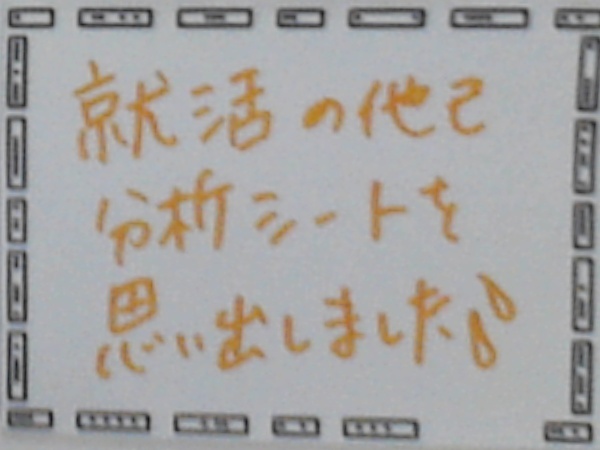 就活の他己
分析シートを
思い出しました♪